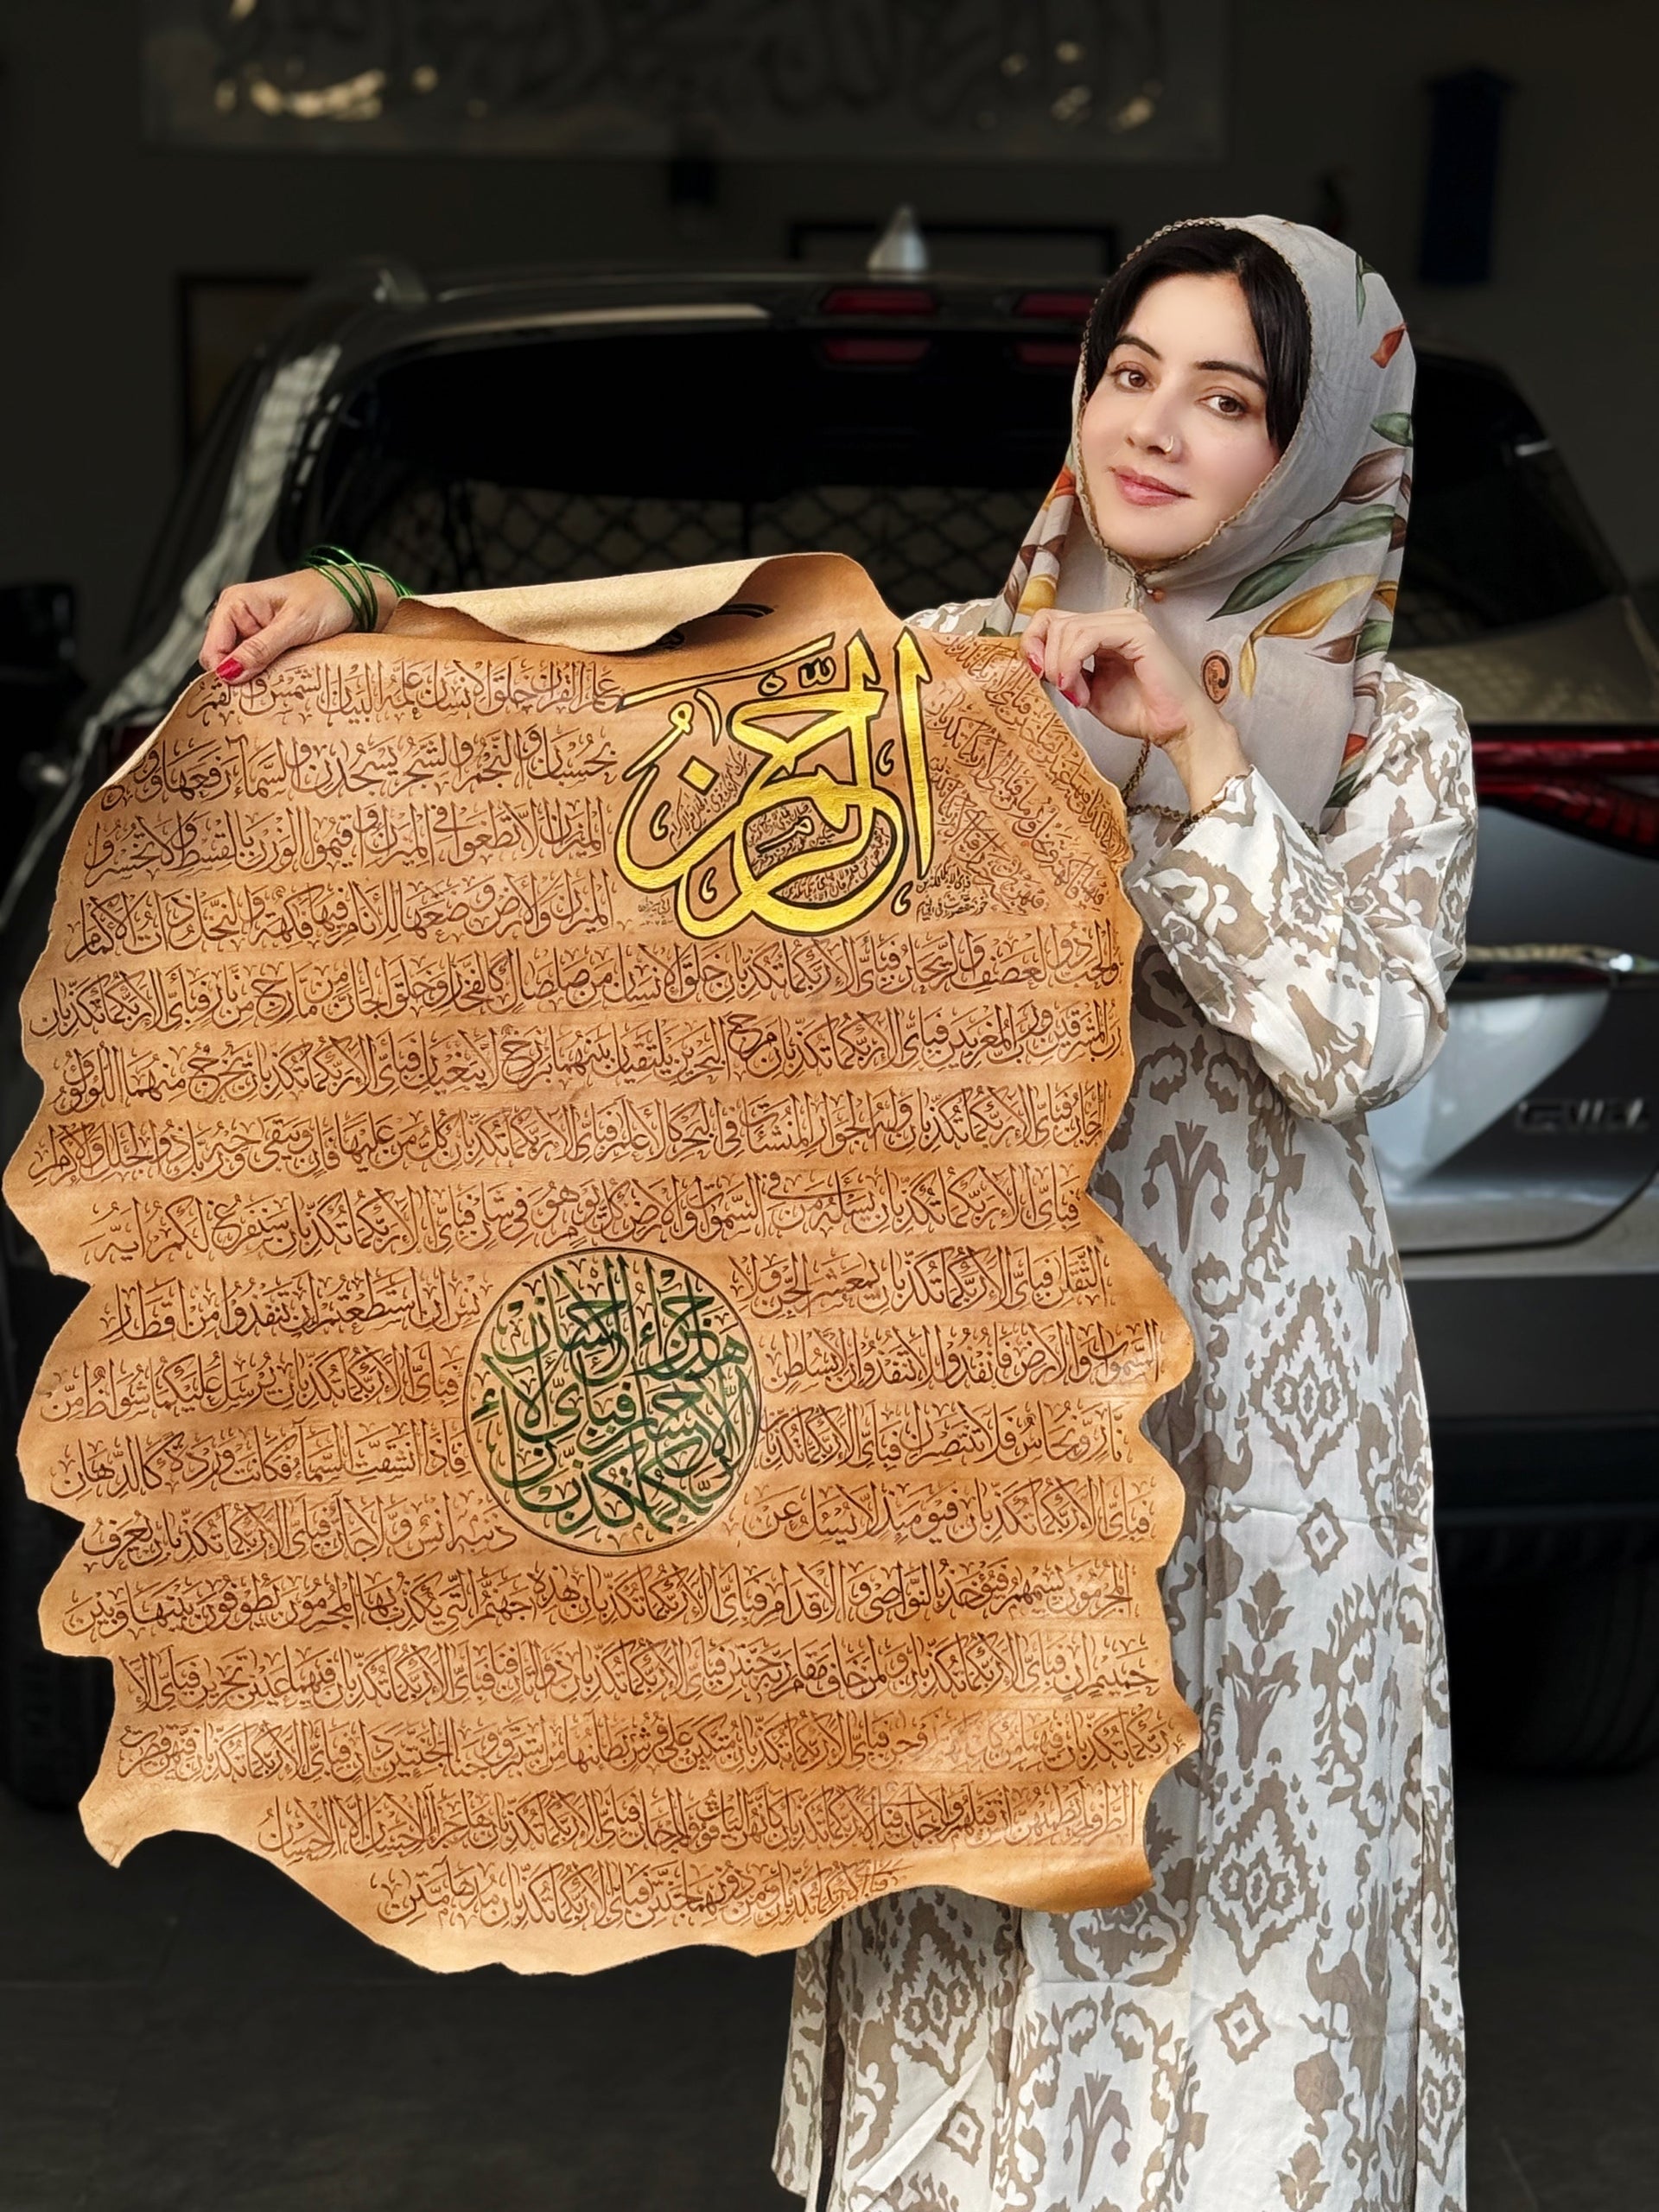 الرحمٰن
علم القرآن خلق الانسان علمه البيان الشمس والقمر
بحسبان والنجم والشجر يسجدان والسماء رفعها ووضع
الميزان الا تطغوا في الميزان واقيموا الوزن بالقسط ولا تخسروا
الميزان والارض وضعها للانام فيها فاكهة والنخل ذات الاكمام
والحب ذو العصف والريحان فباى الاء ربكما تكذبان خلق الانسان من صلصال كالفخار وخلق الجان من مارج من نار فباى الاء ربكما تكذبان
رب المشرقين ورب المغربين فباى الاء ربكما تكذبان مرج البحرين يلتقيان بينهما برزخ لا يبغيان فباى الاء ربكما تكذبان يخرج منهما اللؤلؤ وال
مرجان فباى الاء ربكما تكذبان وله الجوار المنشئات في البحر كالاعلام فباى الاء ربكما تكذبان كل من عليها فان ويبقى وجه ربك ذو الجلل والاكرام
فباى الاء ربكما تكذبان يسئله من في السموت والارض كل يوم هو في شان فباى الاء ربكما تكذبان سنفرغ لكم ايه
الثقلن فباى الاء ربكما تكذبان يمعشر الجن والا
نس ان استطعتم ان تنفذوا من اقطار
السموات والارض فانفذوا لا تنفذون الا بسلطن
فباى الاء ربكما تكذبان يرسل عليكما شواظ من
نار ونحاس فلا تنتصران فباى الاء ربكما تكذبان
فاذا انشقت السماء فكانت وردة كالدهان
فباى الاء ربكما تكذبان فيومئذ لا يسئل عن
ذنبه انس ولا جان فباى الاء ربكما تكذبان يعرف
هل جزاء الاحسان
الا الاحسان فباى الاء
ربكما تكذبان
المجرمون بسيمهم فيؤخذ بالنواصى والاقدام فباى الاء ربكما تكذبان هذه جهنم التى يكذب بها المجرمون يطوفون بينها وبين
حميم ان فباى الاء ربكما تكذبان ولمن خاف مقام ربه جنتن فباى الاء ربكما تكذبان ذواتا افنان فباى الاء ربكما تكذبان فيهما عينن تجرين فباى الاء
ربكما تكذبان فيهما من كل فاكهة زوجن فباى الاء ربكما تكذبان متكئين على فرش بطائنها من استبرق وجنا الجنتين دان فباى الاء ربكما تكذبان فيهن قصرت
الطرف لم يطمثهن انس قبلهم ولا جان فباى الاء ربكما تكذبان كانهن الياقوت والمرجان فباى الاء ربكما تكذبان هل جزاء الاحسان الا الاحسان
فباى الاء ربكما تكذبان ومن دونهما جنتن فباى الاء ربكما تكذبان مدهامتن